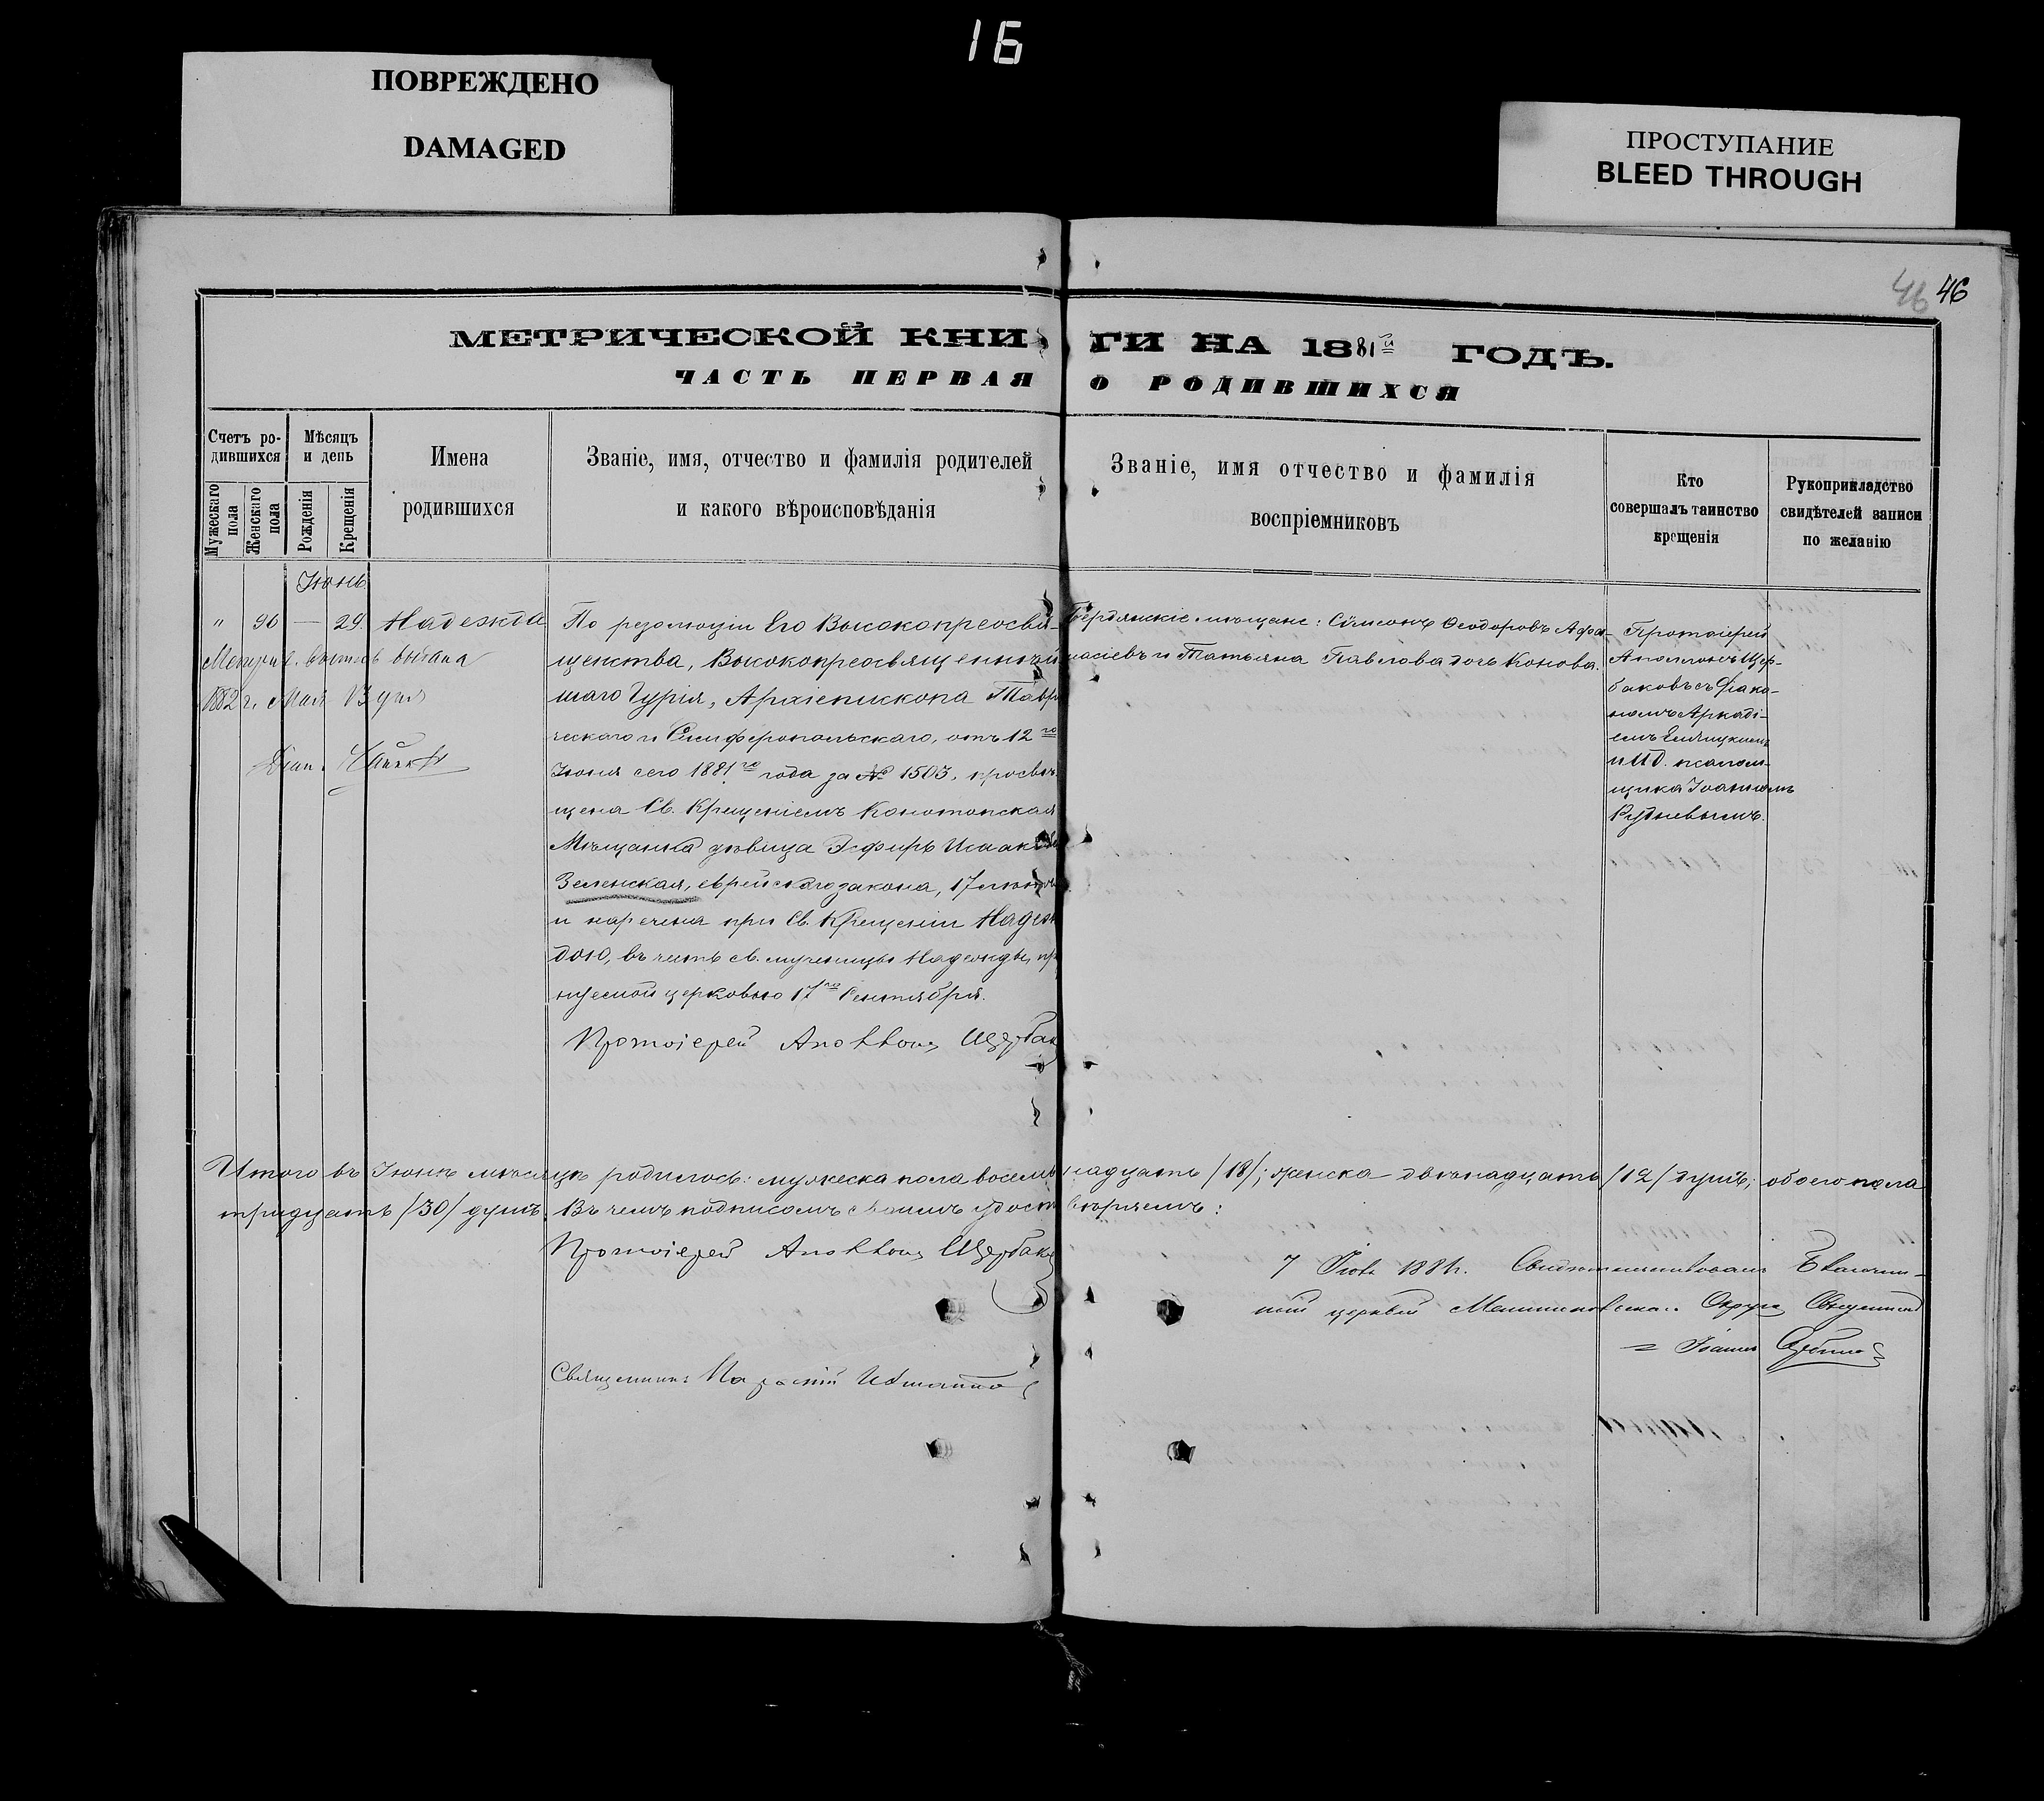 16
ПОВРЕЖДЕНО
DAMAGED
ПРОСТУПАНИЕ
BLEED THROUGH
46 46
МЕТРИЧЕСКОЙ КНИГИ НА 1881й ГОДЪ.
ЧАСТЬ ПЕРВАЯ О РОДИВШИХСЯ
Счетъ ро-
дившихся
Мужескаго пола
Женскаго пола
Мѣсяцъ
и день
Рожденія
Крещенія
Имена
родившихся
Званіе, имя, отчество и фамилія родителей
и какого вѣроисповѣданія
Званіе, имя отчество и фамилія
воспріемниковъ
Кто
совершалъ таинство
крещенія
Рукоприкладство
свидѣтелей записи
по желанію
Іюнь
" 96 — 29. Надежда
выдана
1882 г. Мая 13 дня
По резолюціи Его Высокопреосвя-
щенства, Высокопреосвященнѣй
шаго Гурія, Архіепископа Таври
ческаго и Симферопольскаго, отъ 12го
Іюня сего 1881го года за № 1503, просвѣ-
щена Св. Крещеніемъ Конотопская
Мѣщанка дѣвица Эсфирь Исаак
Зеленская, еврейскаго закона, 17
и наречена при Св. Крещеніи Надеж
дою, въ честь св. мученицы Надежды,
церковью 17го Сентября.
Протоіерей Аполлонъ Щербак
Бердянскіе мѣщане: Сѵмеонъ Ѳеодоровъ Афа-
насіевъ и Татьяна Павлова дочь Конова.
Протоіерей
Аполлонъ Щер-
баковъ съ Діако-
номъ Аркаді-
емъ
и И.д. псалом-
щика Іоанномъ
Рудневымъ.
Итого въ Іюнѣ мѣсяцѣ родилось: мужеска пола восемьнадцать /18/; женска — двѣнадцать /12/ душъ; обоего пола
тридцать /30/ душъ. Въ чемъ подписомъ своимъ удостовѣряемъ:
Протоіерей Аполлонъ Щербак
7 1881 г. Свидѣтельствовалъ Благочин-
ный церквей Округа Священникъ
Іоаннъ
Священникъ